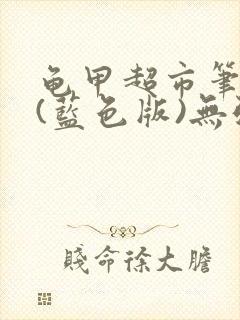 龟甲超市筆
(藍色版)無
賤命徐大膽